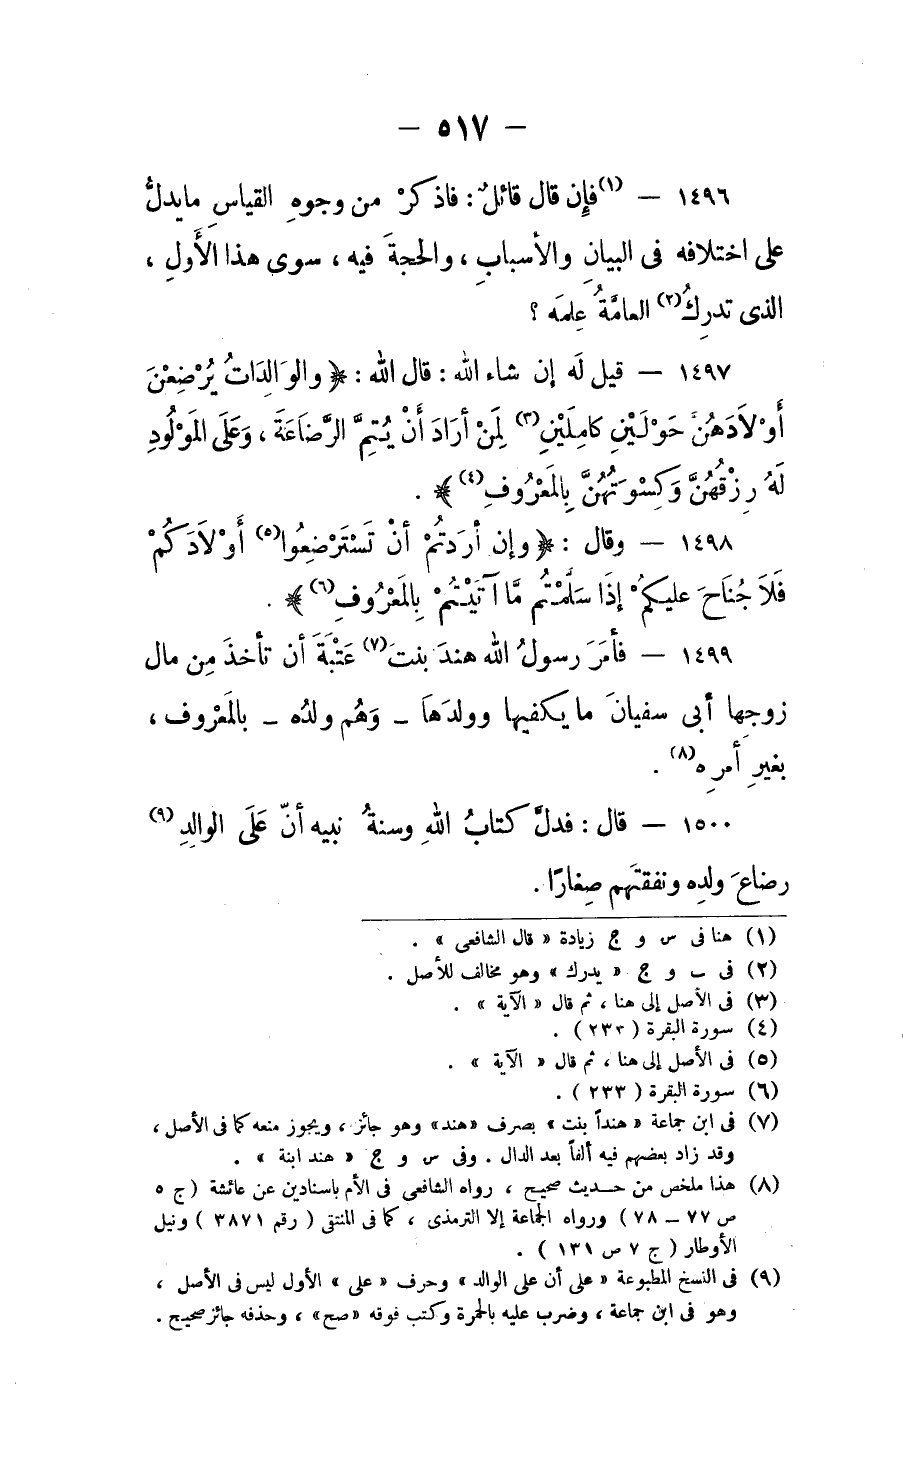 — ٥١٧ —
١٤٩٦ — (١)فإِن قال قائلٌ: فاذكرْ من وجوهِ القياسِ مايدلُّ
على اختلافه فى البيانِ والأسبابِ ، والحجةَ فيه ، سوى هذا الأَولِ ،
الذى تدرِكُ(٢) العامَّةُ عِلمَه ؟
١٤٩٧ — قيل لَه إن شاء الله : قال الله : ﴿ والوَالِدَاتُ يُرْضِعْنَ
أَوْلاَدَهُنَّ حَوْلَيْنِ كامِلَيْنِ(٣) لِمَنْ أرَادَ أَنْ يُتِمَّ الرَّضَاعَةَ ، وَعَلَى المَوْلُودِ
لَهُ رِزْقُهُنَّ وَكِسْوَتُهُنَّ بِالمَعْرُوفِ(٤) ﴾ .
١٤٩٨ — وقال : ﴿ وإن أرَدتُمْ أنْ تَسْتَرْضِعُوا(٥) أَوْلاَدَكُمْ
فَلاَ جُنَاحَ عليكمْ إذَا سَلَّمْتُم مَّا آتَيْتُمْ بِالمَعْرُوفِ(٦) ﴾ .
١٤٩٩ — فأَمَرَ رسولُ الله هندَ بنتَ(٧) عَتْبَةَ أن تأخذَ مِن مال
زوجِها أبى سفيانَ ما يكفيها وولدَهاَ ـ وَهُم ولدُه ـ بالمَعْروف ،
بغيرِ أمرِه(٨) .
١٥٠٠ — قال : فدلَّ كتابُ اللهِ وسنةُ نبيه أنّ عَلَى الوالِدِ (٩)
رضاعَ ولدِه ونفقتَهم صِغارًا .
(١) هنا فى س و ج زيادة « قال الشافعى » .
(٢) فى ب و ج « يدرك » وهو مخالف للأصل .
(٣) فى الأصل إلى هنا ، ثم قال « الآية » .
(٤) سورة البقرة ( ٢٣٣ ) .
(٥) فى الأصل إلى هنا ، ثم قال « الآية » .
(٦) سورة البقرة ( ٢٣٣ ) .
(٧) فى ابن جماعة « هنداً بنت » بصرف «هند» وهو جائز ، ويجوز منعه كما فى الأصل ،
وقد زاد بعضهم فيه ألفاً بعد الدال . وفى س و ج « هند ابنة » .
(٨) هذا ملخص من حديث صحيح ، رواه الشافعى فى الأم باسنادين عن عائشة ( ج ٥
ص ٧٧ ـ ٧٨ ) ورواه الجماعة إلا الترمذى ، كما فى المنتقى ( رقم ٣٨٧١ ) ونيل
الأوطار ( ج ٧ ص ١٣١ ) .
(٩) فى النسخ المطبوعة « على أن على الوالد » وحرف « على » الأول ليس فى الأصل ،
وهو فى ابن جماعة ، وضرب عليه بالحمرة وكتب فوقه «صح» ، وحذفه جائز صحيح .